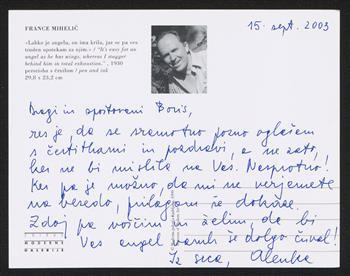 FRANCE MIHELIČ
«Lahko je angelu, on ima krila, jaz se pa ves
truden opotekam za njim.» / "It's easy for an
angel as he has wings, whereas I stagger
behind him in total exhaustion." , 1930
peresnika s črnilom / pen and ink
29,8 x 23,2 cm
15. sept. 2003
Dragi in spoštovani Boris,
res je, da se sramotno pozno oglašam
s čestitkami in pozdravi, a ne zato,
ker ne bi mislila na Vas. Nasprotno!
Ker pa je možno, da mi ne verjamete
na besedo, prilagam še dokaze.
Zdaj pa voščim in želim, da bi
Vas angel varuh še dolgo čuval!
Iz srca, Alenka
MODERNA
GALERIJA